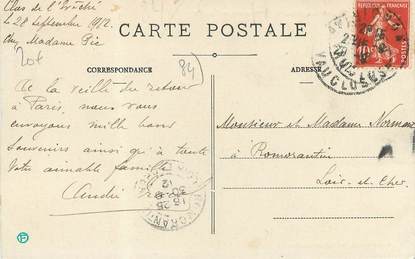 Clos de l'Evêché
le 28 Septembre 1912
Chez Madame Pic
20f
84
CARTE POSTALE
CORRESPONDANCE
ADRESSE
REPUBLIQUE FRANÇAISE
10
POSTES
VAUCLUSE
De la veille du retour
à Paris, nous vous
envoyons mille bons
souvenirs ainsi qu'à toute
votre aimable famille
André
Monsieur et Madame Normant
à Romorantin
Loir-et-Cher
ROMORANTIN